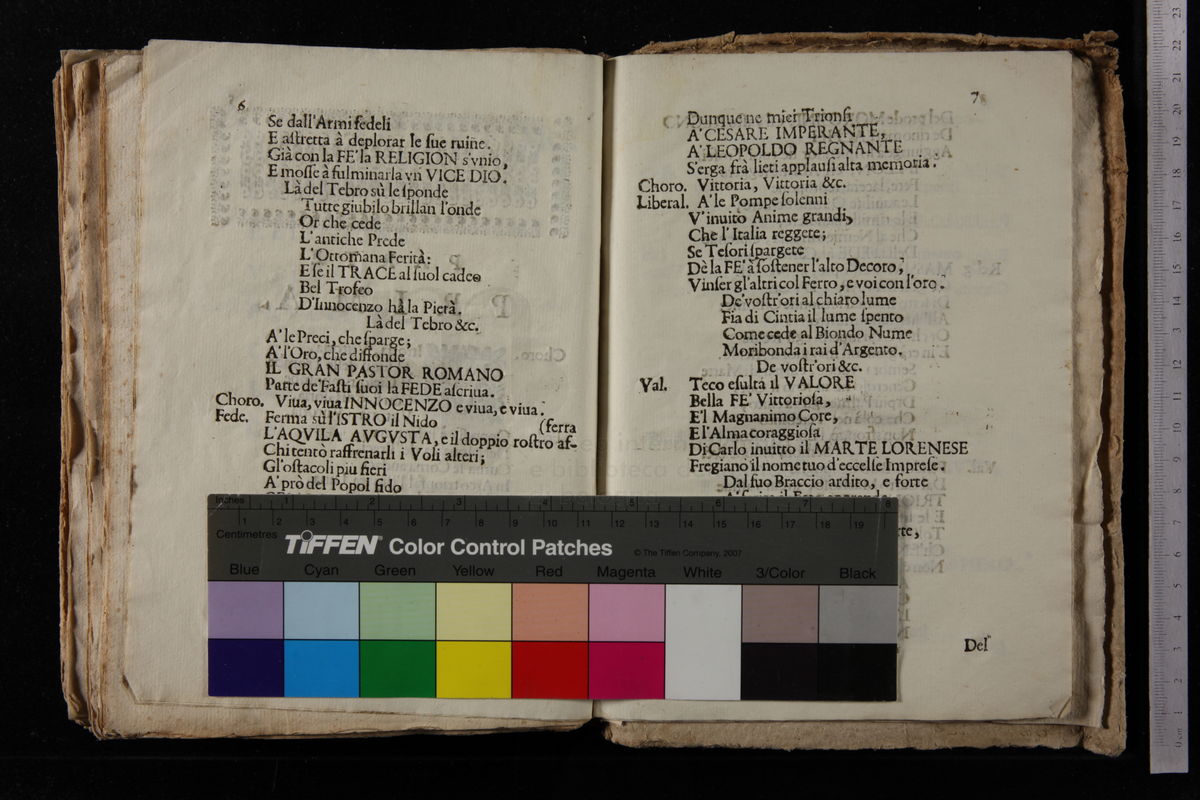 6
Se dall'Armi fedeli
E aſtretta à deplorar le ſue ruine.
Già con la FE' la RELIGION s'vnio,
E moſſe à fulminarla vn VICE DIO.
Là del Tebro sù le ſponde
Tutte giubilo brillan l'onde
Or che cede
L'antiche Prede
L'Ottomana Ferità:
E ſe il TRACE al ſuol cadeo
Bel Trofeo
D'Innocenzo hà la Pietà.
Là del Tebro &c.
A' le Preci, che ſparge;
A' l'Oro, che diffonde
IL GRAN PASTOR ROMANO
Parte de' Faſti ſuoi la FEDE aſcriua.
Choro. Viua, viua INNOCENZO e viua, e viua.
Fede. Ferma sù l'ISTRO il Nido
(ferra
L'AQVILA AVGVSTA, e il doppio roſtro af-
Chi tentò raffrenarli i Voli alteri;
Gl'oſtacoli piu fieri
A' prò del Popol fido
7
Dunque ne miei Trionfi
A' CESARE IMPERANTE,
A' LEOPOLDO REGNANTE
S'erga frà lieti applauſi alta memoria.
Choro. Vittoria, Vittoria &c.
Liberal. A' le Pompe ſolenni
V'inuito Anime grandi,
Che l'Italia reggete;
Se Teſori ſpargete
Dè la FE' à ſoſtener l'alto Decoro,
Vinſer gl'altri col Ferro, e voi con l'oro.
De' voſtr'ori al chiaro lume
Fia di Cintia il lume ſpento
Come cede al Biondo Nume
Moribonda i rai d'Argento.
De voſtr'ori &c.
Val. Teco eſulta il VALORE
Bella FE' Vittorioſa,
E'l Magnanimo Core,
E l'Alma coraggioſa
Di Carlo inuitto il MARTE LORENESE
Fregiano il nome tuo d'eccelſe Impreſe.
Dal ſuo Braccio ardito, e forte
rte,
Del
inches 1 2 3 4 5 6 7 8
Centimetres 1 2 3 4 5 6 7 8 9 10 11 12 13 14 15 16 17 18 19
TIFFEN Color Control Patches © The Tiffen Company, 2007
Blue Cyan Green Yellow Red Magenta White 3/Color Black
0 cm 1 2 3 4 5 6 7 8 9 10 11 12 13 14 15 16 17 18 19 20 21 22 23